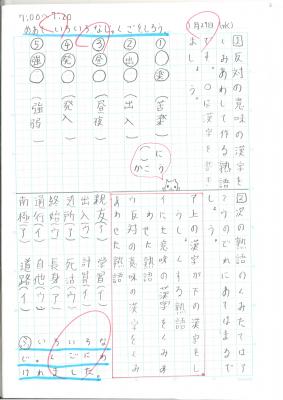 7:00〜7:20
1月27日(水)
めあて いろいろなじゅくごをしろう。
１反対の意味の漢字を
くみあわせて作る熟語
です。〇に漢字を書き
ましょう。
①〇楽(苦楽)
②出〇(出入)
③昼〇(昼夜)
④発〇(発入)
⑤強〇(強弱)
２次の熟語のくみたてはア
〜ウのどれにあてはまるで
しょう。
ア上の漢字が下の漢字をし
うしょくする熟語
イにた意味の漢字をくみあ
わせた熟語
ウ反対の意味の漢字をくみ
あわせた熟語
親友(ア) 学習(イ)
出入(ウ) 計算(イ)
近所(ア) 死活(ウ)
終始(ウ) 長身(ア)
通行(イ) 自他(ウ)
南極(ア) 道路(イ)
いろいろな
じゅくごにめ
けれました。